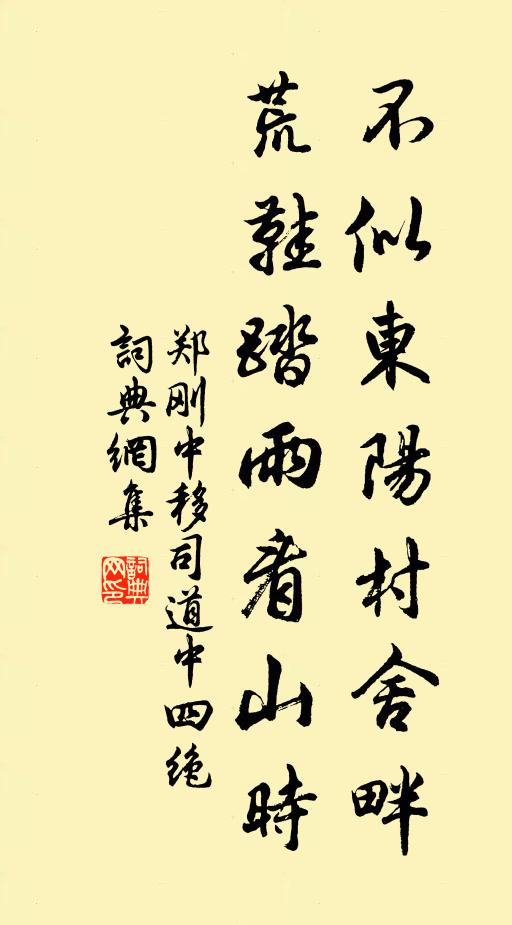 不似東陽村舍畔
荒鞋踏雨看山時
郑刚中移司道中四绝
詞典網集
詞典网印